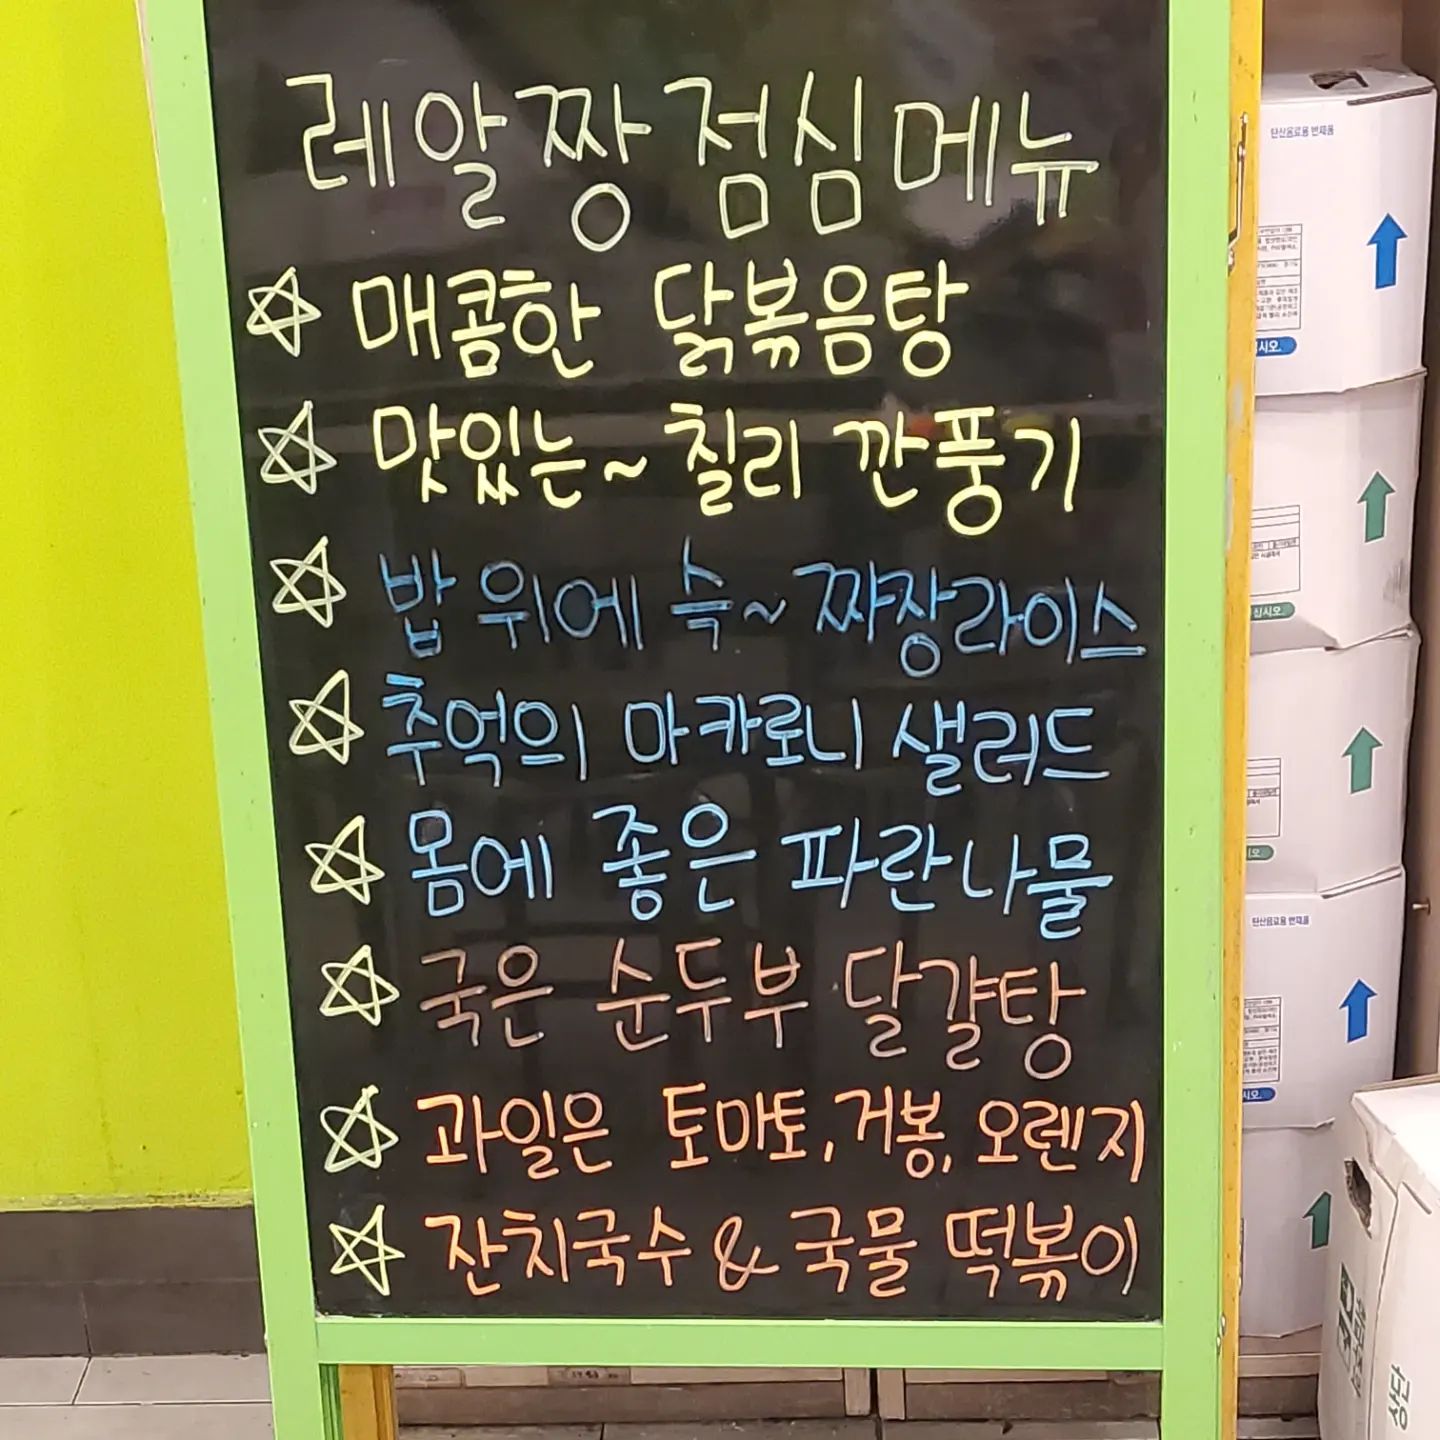 레알짱 점심메뉴
☆ 매콤한 닭볶음탕
☆ 맛있는~ 칠리 깐풍기
☆ 밥 위에 슥~ 짜장라이스
☆ 추억의 마카로니 샐러드
☆ 몸에 좋은 파란나물
☆ 국은 순두부 달걀탕
☆ 과일은 토마토, 거봉, 오렌지
☆ 잔치국수 & 국물 떡볶이
탄산음료용 반제품
시오.
십시오.
탄산음료용 반제품
시오.